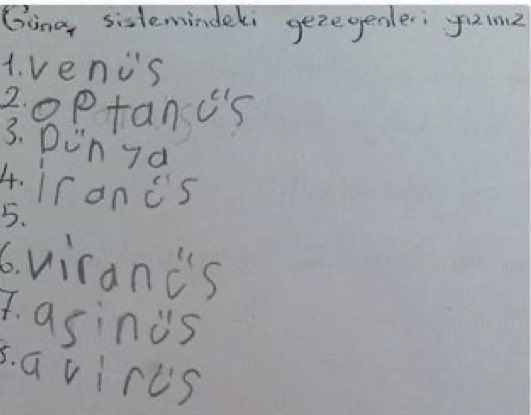 Güneş sistemindeki gezegenleri yazınız
1. venüs
2. optanüs
3. Dünya
4. iranüs
5.
6. viranüs
7. asinüs
8. avirüs